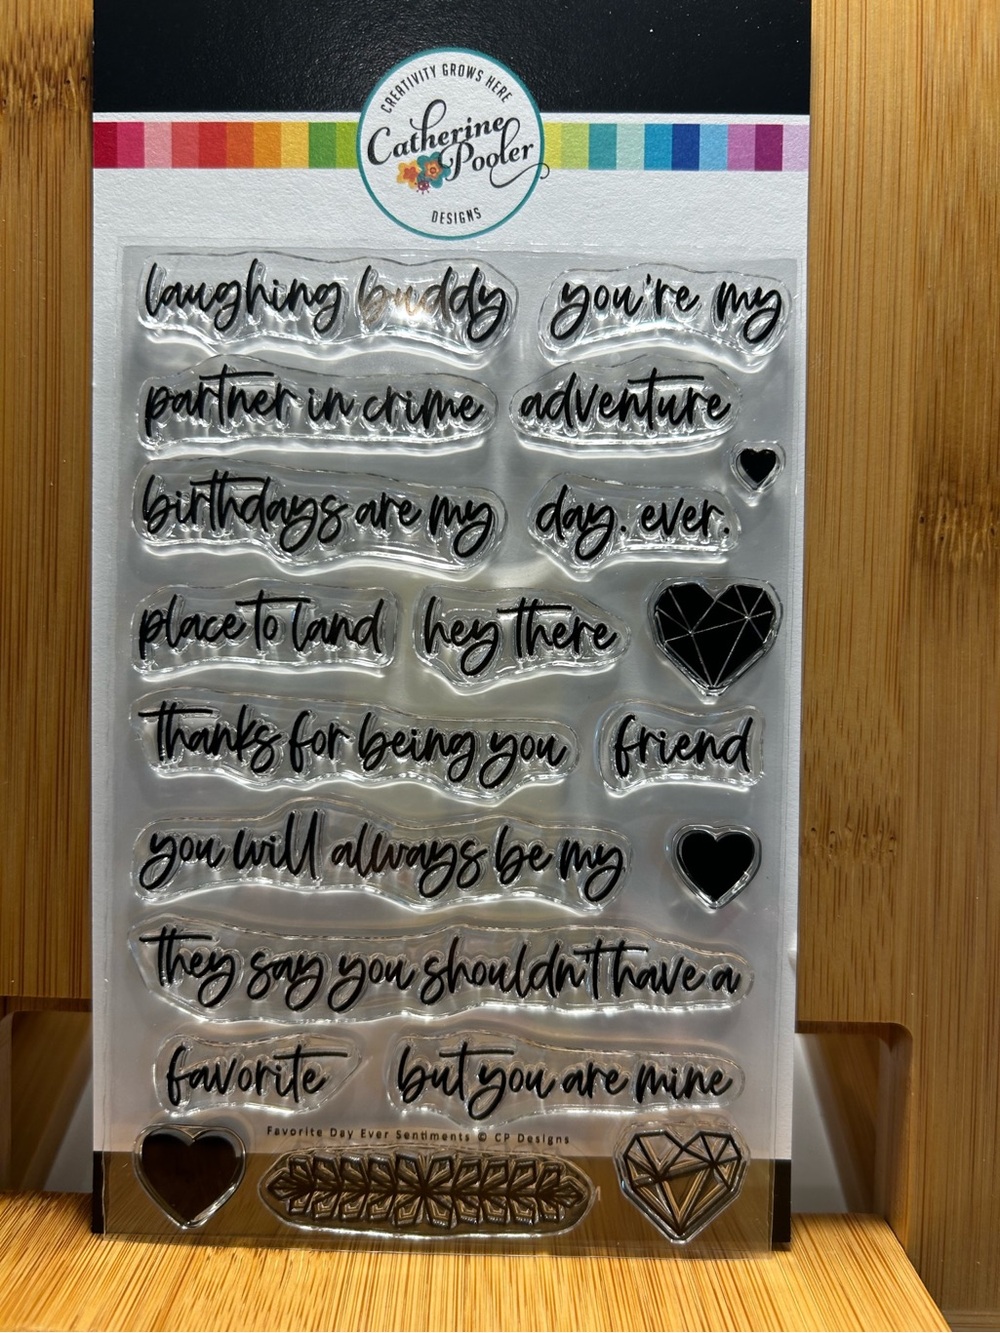 CREATIVITY GROWS HERE
Catherine
Pooler
DESIGNS
laughing buddy
you're my
partner in crime
adventure
birthdays are my
day. ever.
place to land
hey there
thanks for being you
friend
you will always be my
they say you shouldn't have a
favorite
but you are mine
Favorite Day Ever Sentiments © CP Designs